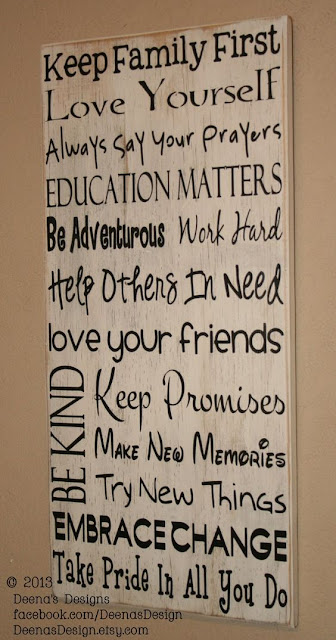 Keep Family First
Love Yourself
Always Say Your Prayers
EDUCATION MATTERS
Be Adventurous Work Hard
Help Others In Need
love your friends
BE KIND
Keep Promises
Make New Memories
Try New Things
EMBRACE CHANGE
Take Pride In All You Do
© 2013
Deena's Designs
facebook.com/DeenasDesign
DeenasDesign.etsy.com